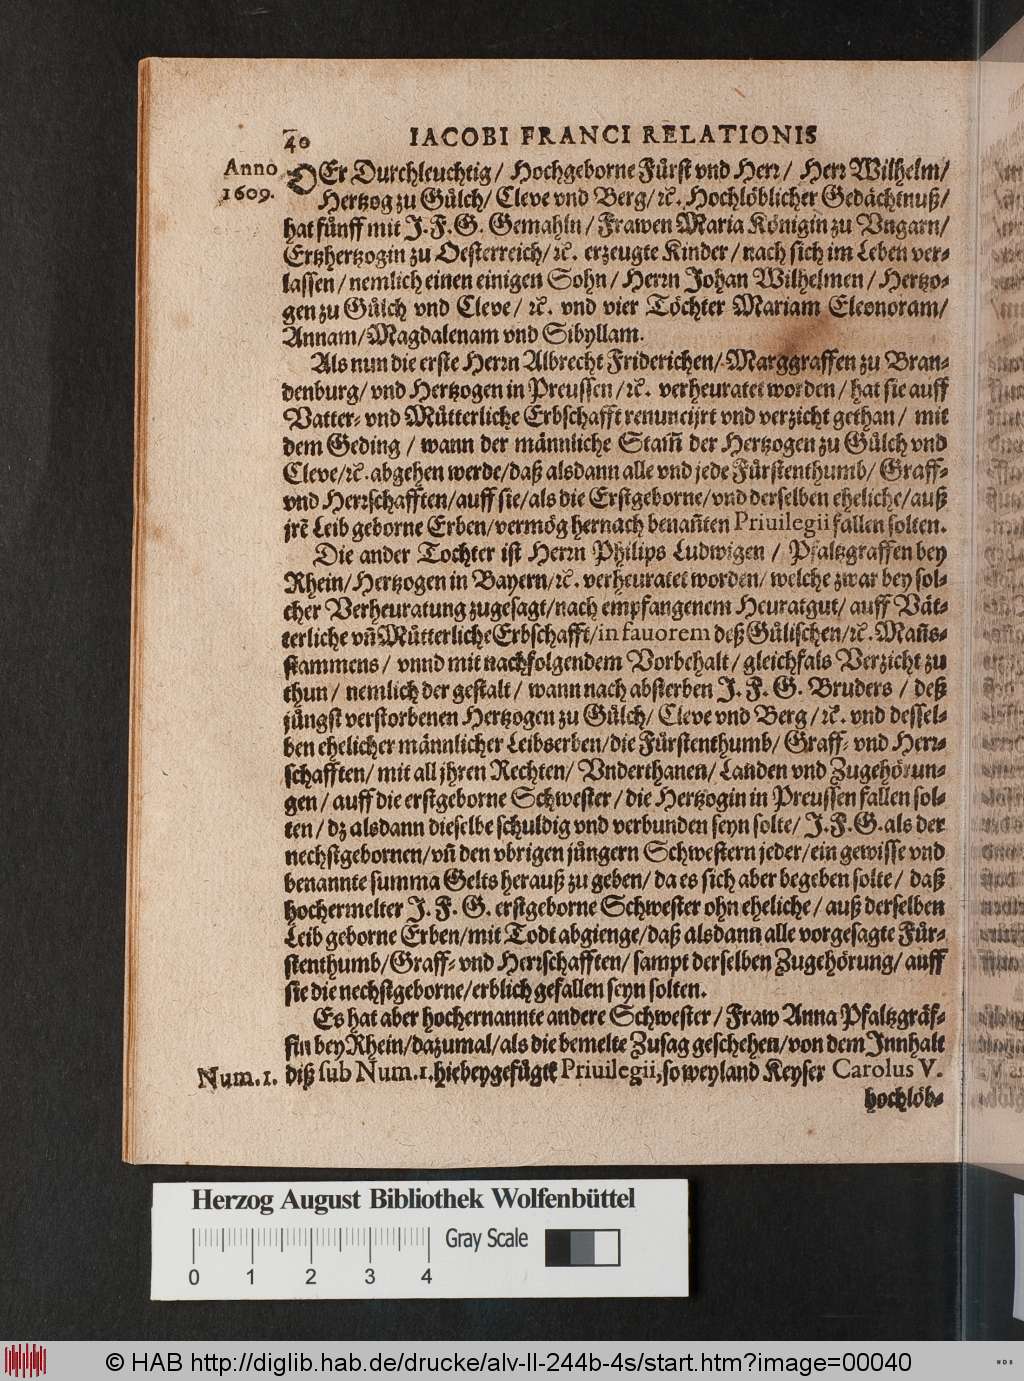 40 IACOBI FRANCI RELATIONIS
Anno
1609.
DEr Durchleuchtig / Hochgeborne Fürst vnd Herr / Herr Wilhelm /
Hertzog zu Gülch / Cleve vnd Berg / ꝛc. Hochlöblicher Gedächtnuß /
hat fünff mit J. F. G. Gemahln / Frawen Maria Königin zu Vngarn /
Ertzhertzogin zu Oesterreich / ꝛc. erzeugte Kinder / nach sich im Leben ver-
lassen / nemlich einen einigen Sohn / Herrn Johan Wilhelmen / Hertzo-
gen zu Gülch vnd Cleve / ꝛc. vnd vier Töchter Mariam Eleonoram /
Annam / Magdalenam vnd Sibyllam.
Als nun die erste Herrn Albrecht Friderichen / Marggraffen zu Bran-
denburg / vnd Hertzogen in Preussen / ꝛc. verheuratet worden / hat sie auff
Vatter- vnd Mütterliche Erbschafft renuncijrt vnd verzicht gethan / mit
dem Geding / wann der männliche Stam̃ der Hertzogen zu Gülch vnd
Cleve / ꝛc. abgehen werde / daß alsdann alle vnd jede Fürstenthumb / Graff-
vnd Herrschafften / auff sie / als die Erstgeborne / vnd derselben eheliche / auß
jrẽ Leib geborne Erben / vermög hernach benañten Priuilegii fallen solten.
Die ander Tochter ist Herrn Philips Ludwigen / Pfaltzgraffen bey
Rhein / Hertzogen in Bayern / ꝛc. verheuratet worden / welche zwar bey sol-
cher Verheuratung zugesagt / nach empfangenem Heuratgut / auff Vät-
terliche vñ Mütterliche Erbschafft / in fauorem deß Gülischen / ꝛc. Mañs-
stammens / vnnd mit nachfolgendem Vorbehalt / gleichfals Verzicht zu
thun / nemlich der gestalt / wann nach absterben J. F. G. Bruders / deß
jüngst verstorbenen Hertzogen zu Gülch / Cleve vnd Berg / ꝛc. vnd dessel-
ben ehelicher männlicher Leibserben / die Fürstenthumb / Graff- vnd Herr-
schafften / mit all jhren Rechten / Vnderthanen / Landen vnd Zugehörun-
gen / auff die erstgeborne Schwester / die Hertzogin in Preussen fallen sol-
ten / dz alsdann dieselbe schuldig vnd verbunden seyn solte / J. F. G. als der
nechstgebornen / vñ den vbrigen jüngern Schwestern jeder / ein gewisse vnd
benannte summa Gelts herauß zu geben / da es sich aber begeben solte / daß
hochermelter J. F. G. erstgeborne Schwester ohn eheliche / auß derselben
Leib geborne Erben / mit Todt abgienge / daß alsdann alle vorgesagte Für-
stenthumb / Graff- vnd Herrschafften / sampt derselben Zugehörung / auff
sie die nechstgeborne / erblich gefallen seyn solten.
Es hat aber hochernannte andere Schwester / Fraw Anna Pfaltzgräf-
fin bey Rhein / dazumal / als die bemelte Zusag geschehen / von dem Innhalt
Num. 1. diß sub Num. 1. hiebeygefügte Priuilegii, so weyland Keyser Carolus V.
hochlöb-
Herzog August Bibliothek Wolfenbüttel
Gray Scale
0 1 2 3 4
© HAB http://diglib.hab.de/drucke/alv-ll-244b-4s/start.htm?image=00040